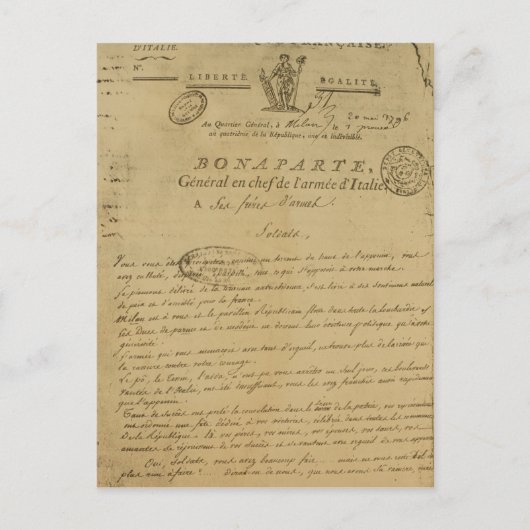 D'ITALIE.
FRANÇAISE.
N.º
LIBERTÉ. EGALITÉ.
20 mai 1796
Au Quartier Général, à Milan, le 1 prairial
au quatrième de la République, une et indivisible.
BONAPARTE,
Général en chef de l'armée d'Italie,
A Ses frères d'armes
Soldats,
Vous vous êtes précipités comme un torrent du haut de l'apennin, vous
avez culbuté, dispersé, tout ce qui s'opposait à votre marche.
Le piémont délivré de la tirannie autrichienne s'est livré à ses sentimens naturels
de paix et d'amitié pour la france.
Milan est à vous et le pavillon Républicain flotte dans toute la lombardie
Les Ducs de parme et de modène ne doivent leur existence politique qu'à votre
générosité.
L'armée qui vous menaçait avec tant d'orgueil, ne trouve plus de barrière qui
la rassure contre votre courage.
Le pô, le Tesin, l'adda n'ont pu vous arrêter un seul jour, ces boulevards
vantés de l'Italie, ont été insuffisans, vous les avez franchis aussi rapidement
que l'apennin.
Tant de succès ont porté la joie dans le sein de la patrie, vos représentans
ont ordonné une fête dédiée à vos victoires, célébrée dans toutes les communes
De la République là vos pères, vos mères, vos épouses, vos sœurs, vos
amantes se réjouissent de vos succès et se vantent avec orgueil de vous appartenir
Oui, Soldats, vous avez beaucoup fait... mais ne vous reste-t-il
plus rien à faire?... Dira-t-on de nous, que nous avons su vaincre, mais